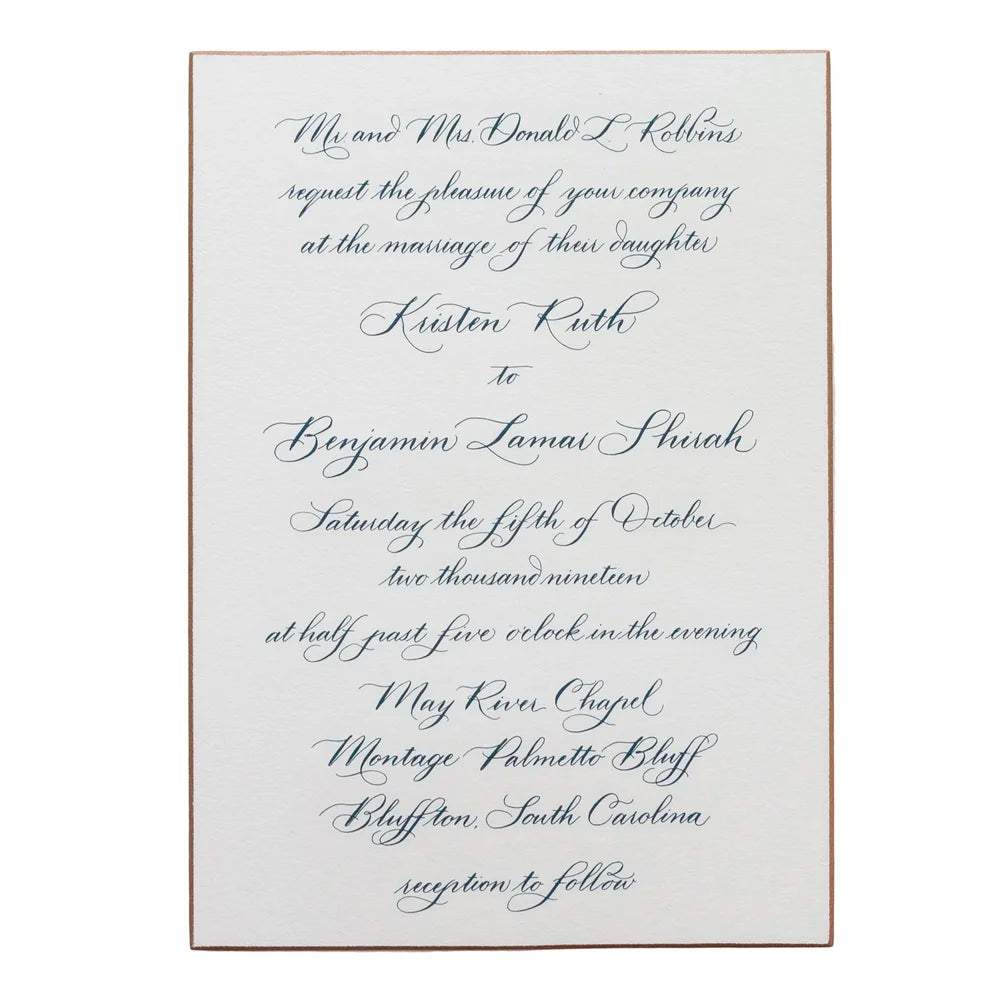 Mr. and Mrs. Donald L. Robbins
request the pleasure of your company
at the marriage of their daughter
Kristen Ruth
to
Benjamin Lamar Shirah
Saturday the fifth of October
two thousand nineteen
at half past five o'clock in the evening
May River Chapel
Montage Palmetto Bluff
Bluffton, South Carolina
reception to follow